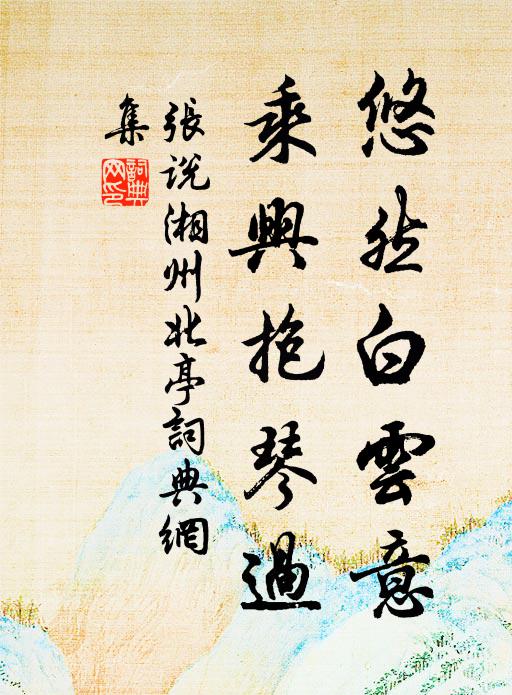 悠然白雲意
乘興抱琴過
張說湘州北亭詞典網
集
詞典網印